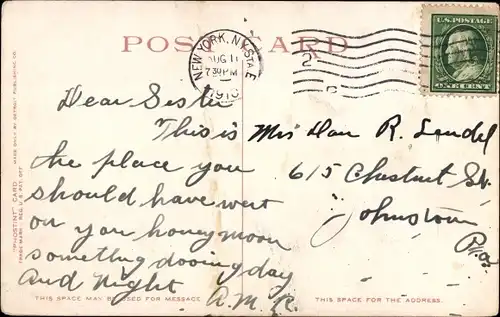 POST CARD
NEW YORK, N.Y. STA E
AUG 11
730PM
1910
U.S. POSTAGE
ONE CENT
Dear Sister
This is
the place you
should have went
on you honeymoon
something dooing day
And Night
A.M.R.
Mrs Dan R.
615 Chestnut St.
Johnstown
Pa.
"PHOSTINT" CARD
TRADE MARK REG. U.S. PAT. OFF. MADE ONLY BY DETROIT PUBLISHING CO.
THIS SPACE MAY BE USED FOR MESSAGE
THIS SPACE FOR THE ADDRESS.